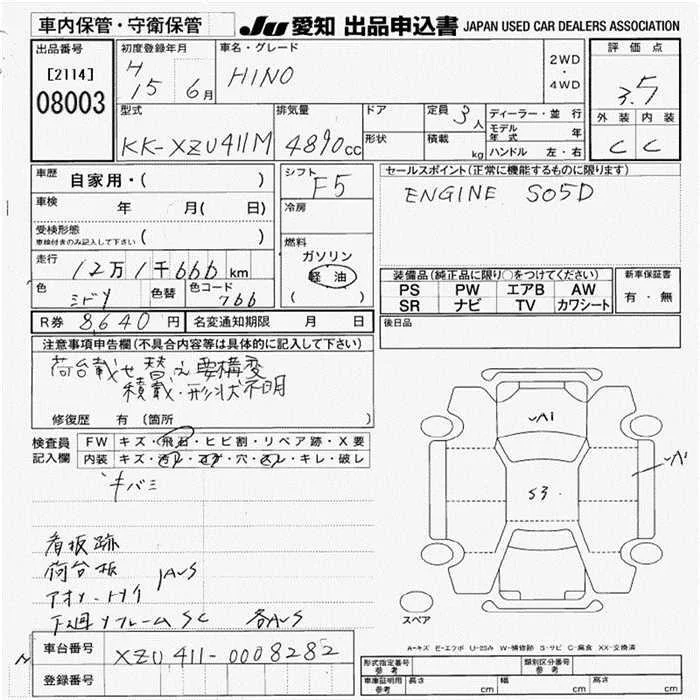 車内保管・守衛保管
JU 愛知 出品申込書 JAPAN USED CAR DEALERS ASSOCIATION
出品番号
[2114]
08003
初度登録年月
H
15 6月
車名・グレード
HINO
2WD
・
4WD
評価点
3.5
外装 内装
C C
型式
KK-XZU411M
排気量
4890cc
ドア
形状
定員 3人
積載 kg
ディーラー・並行
モデル年式 年
ハンドル 左・右
車歴 自家用・( )
車検 年 月( 日)
受検形態
車検付きのみ記入して下さい ( )
走行 12万1千666km
色 ミドリ 色替 色コード 766
R券 8,640円 名変通知期限 月 日
シフト F5
冷房
燃料
ガソリン
軽油
( )
セールスポイント(正常に機能するものに限ります)
ENGINE S05D
装備品(純正品に限り○をつけてください)
PS PW エアB AW
SR ナビ TV カワシート
新車保証書
有・無
後日品
注意事項申告欄(不具合内容等は具体的に記入して下さい)
荷台載せ替え要構変
積載・形状不明
修復歴 有 (箇所 )
検査員記入欄
FW キズ・飛石・ヒビ割・リペア跡・X要
内装 キズ・汚レ・コゲ・穴・スレ・キレ・破レ
キバミ
看板跡
荷台板
アオリ・トリイ
下廻リフレームSC 各AUS
A1
S3
スペア
A-キズ E-エクボ U-凹み W-補修跡 S-サビ C-腐食 XX-交換済
車台番号 XZU411-0008282
登録番号
形式指定番号
参考
類別区分番号
参考
車庫証明用
参考
長さ cm 幅 cm 高さ cm